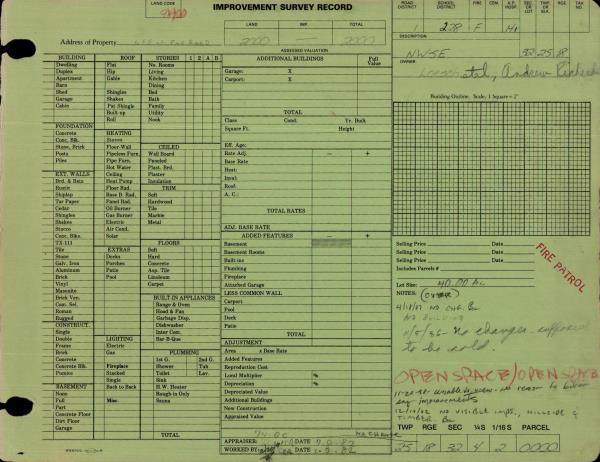 LAND CODE
9400
IMPROVEMENT SURVEY RECORD
LAND IMP. TOTAL
2000 2000
Address of Property
ASSESSED VALUATION
ROAD DISTRICT SCHOOL DISTRICT FIRE COM. A.P. HOSP. SEC. OR LOT TWP. OR BLK. RGE. TAX
228 F H1
DESCRIPTION
NWSE 32-25-18
OWNER:
Andrew Richard
BUILDING ROOF STORIES 1 2 A B
Dwelling Flat No. Rooms
Duplex Hip Living
Apartment Gable Kitchen
Barn Dining
Shed Shingles Bed
Garage Shakes Bath
Cabin Pat Shingle Family
Built-up Utility
Roll Nook
FOUNDATION
Concrete HEATING
Conc. Blk. Stoves
Stone, Brick Floor-Wall CEILED
Posts Pipeless Furn. Wall Board
Piles Pipe Furn. Paneled
Hot Water Plast. Brd.
EXT. WALLS Ceiling Plaster
Brd. & Bats Heat Pump Insulation
Rustic Floor Rad. TRIM
Shiplap Base B. Rad. Soft
Tar Paper Panel Rad. Hardwood
Cedar Oil Burner Tile
Shingles Gas Burner Marble
Shakes Electric Metal
Stucco Air Cond.
Conc. Blks. Solar
TX-111 FLOORS
Tile EXTRAS Soft
Stone Decks Hard
Galv. Iron Porches Concrete
Aluminum Patio Asp. Tile
Brick Pool Linoleum
Vinyl Carpet
Masonite
Brick Ven. BUILT-IN APPLIANCES
Com. Sel. Range & Oven
Roman Hood & Fan
Rugged Garbage Disp.
CONSTRUCT. Dishwasher
Single Inter Com.
Double LIGHTING Bar-B-Que
Frame Electric
Brick Gas PLUMBING
Concrete 1st G. 2nd G.
Concrete Blk Fireplace Shower Tub
Pumice Stacked Toilet Lav.
Single Sink
BASEMENT Back to Back H.W. Heater
None Rough-in Only
Full Misc. Sauna
Part
Concrete Floor
Dirt Floor
Garage
TOTAL
ADDITIONAL BUILDINGS Full Value
Garage: X
Carport: X
TOTAL
Class Cond. Yr. Built
Square Ft. Height
Eff. Age:
Rate Adj. − +
Base Rate
Heat:
Insul:
Roof:
A. C.:
TOTAL RATES
ADJ. BASE RATE
ADDED FEATURES − +
Basement
Basement Rooms
Built ins
Plumbing
Fireplace
Attached Garage
LESS COMMON WALL
Carport
Pool
Deck
Patio
TOTAL
ADJUSTMENT
Area x Base Rate
Added Features
Reproduction Cost
Local Multiplier %
Depreciation %
Depreciated Value
Additional Buildings
New Construction
Appraised Value
APPRAISER: 7-2-82
WORKED BY: 7-2-82
Building Outline. Scale, 1 Square = 2'
Selling Price Date
Selling Price Date
Selling Price Date
Includes Parcels #
FIRE PATROL
Lot Size: 40.00 AC
NOTES:
NO CHG.
NO BUILDING
11/5/86 - No changes - supposed
to be sold.
OPEN SPACE/OPEN SPACE
11-20-90 Unable to view - no reason to believe
any improvements
12/10/02 NO VISIBLE IMPS, HILLSIDE &
TIMBER
TWP RGE SEC ¼S 1/16 S PARCEL
25 18 32 4 2 0000